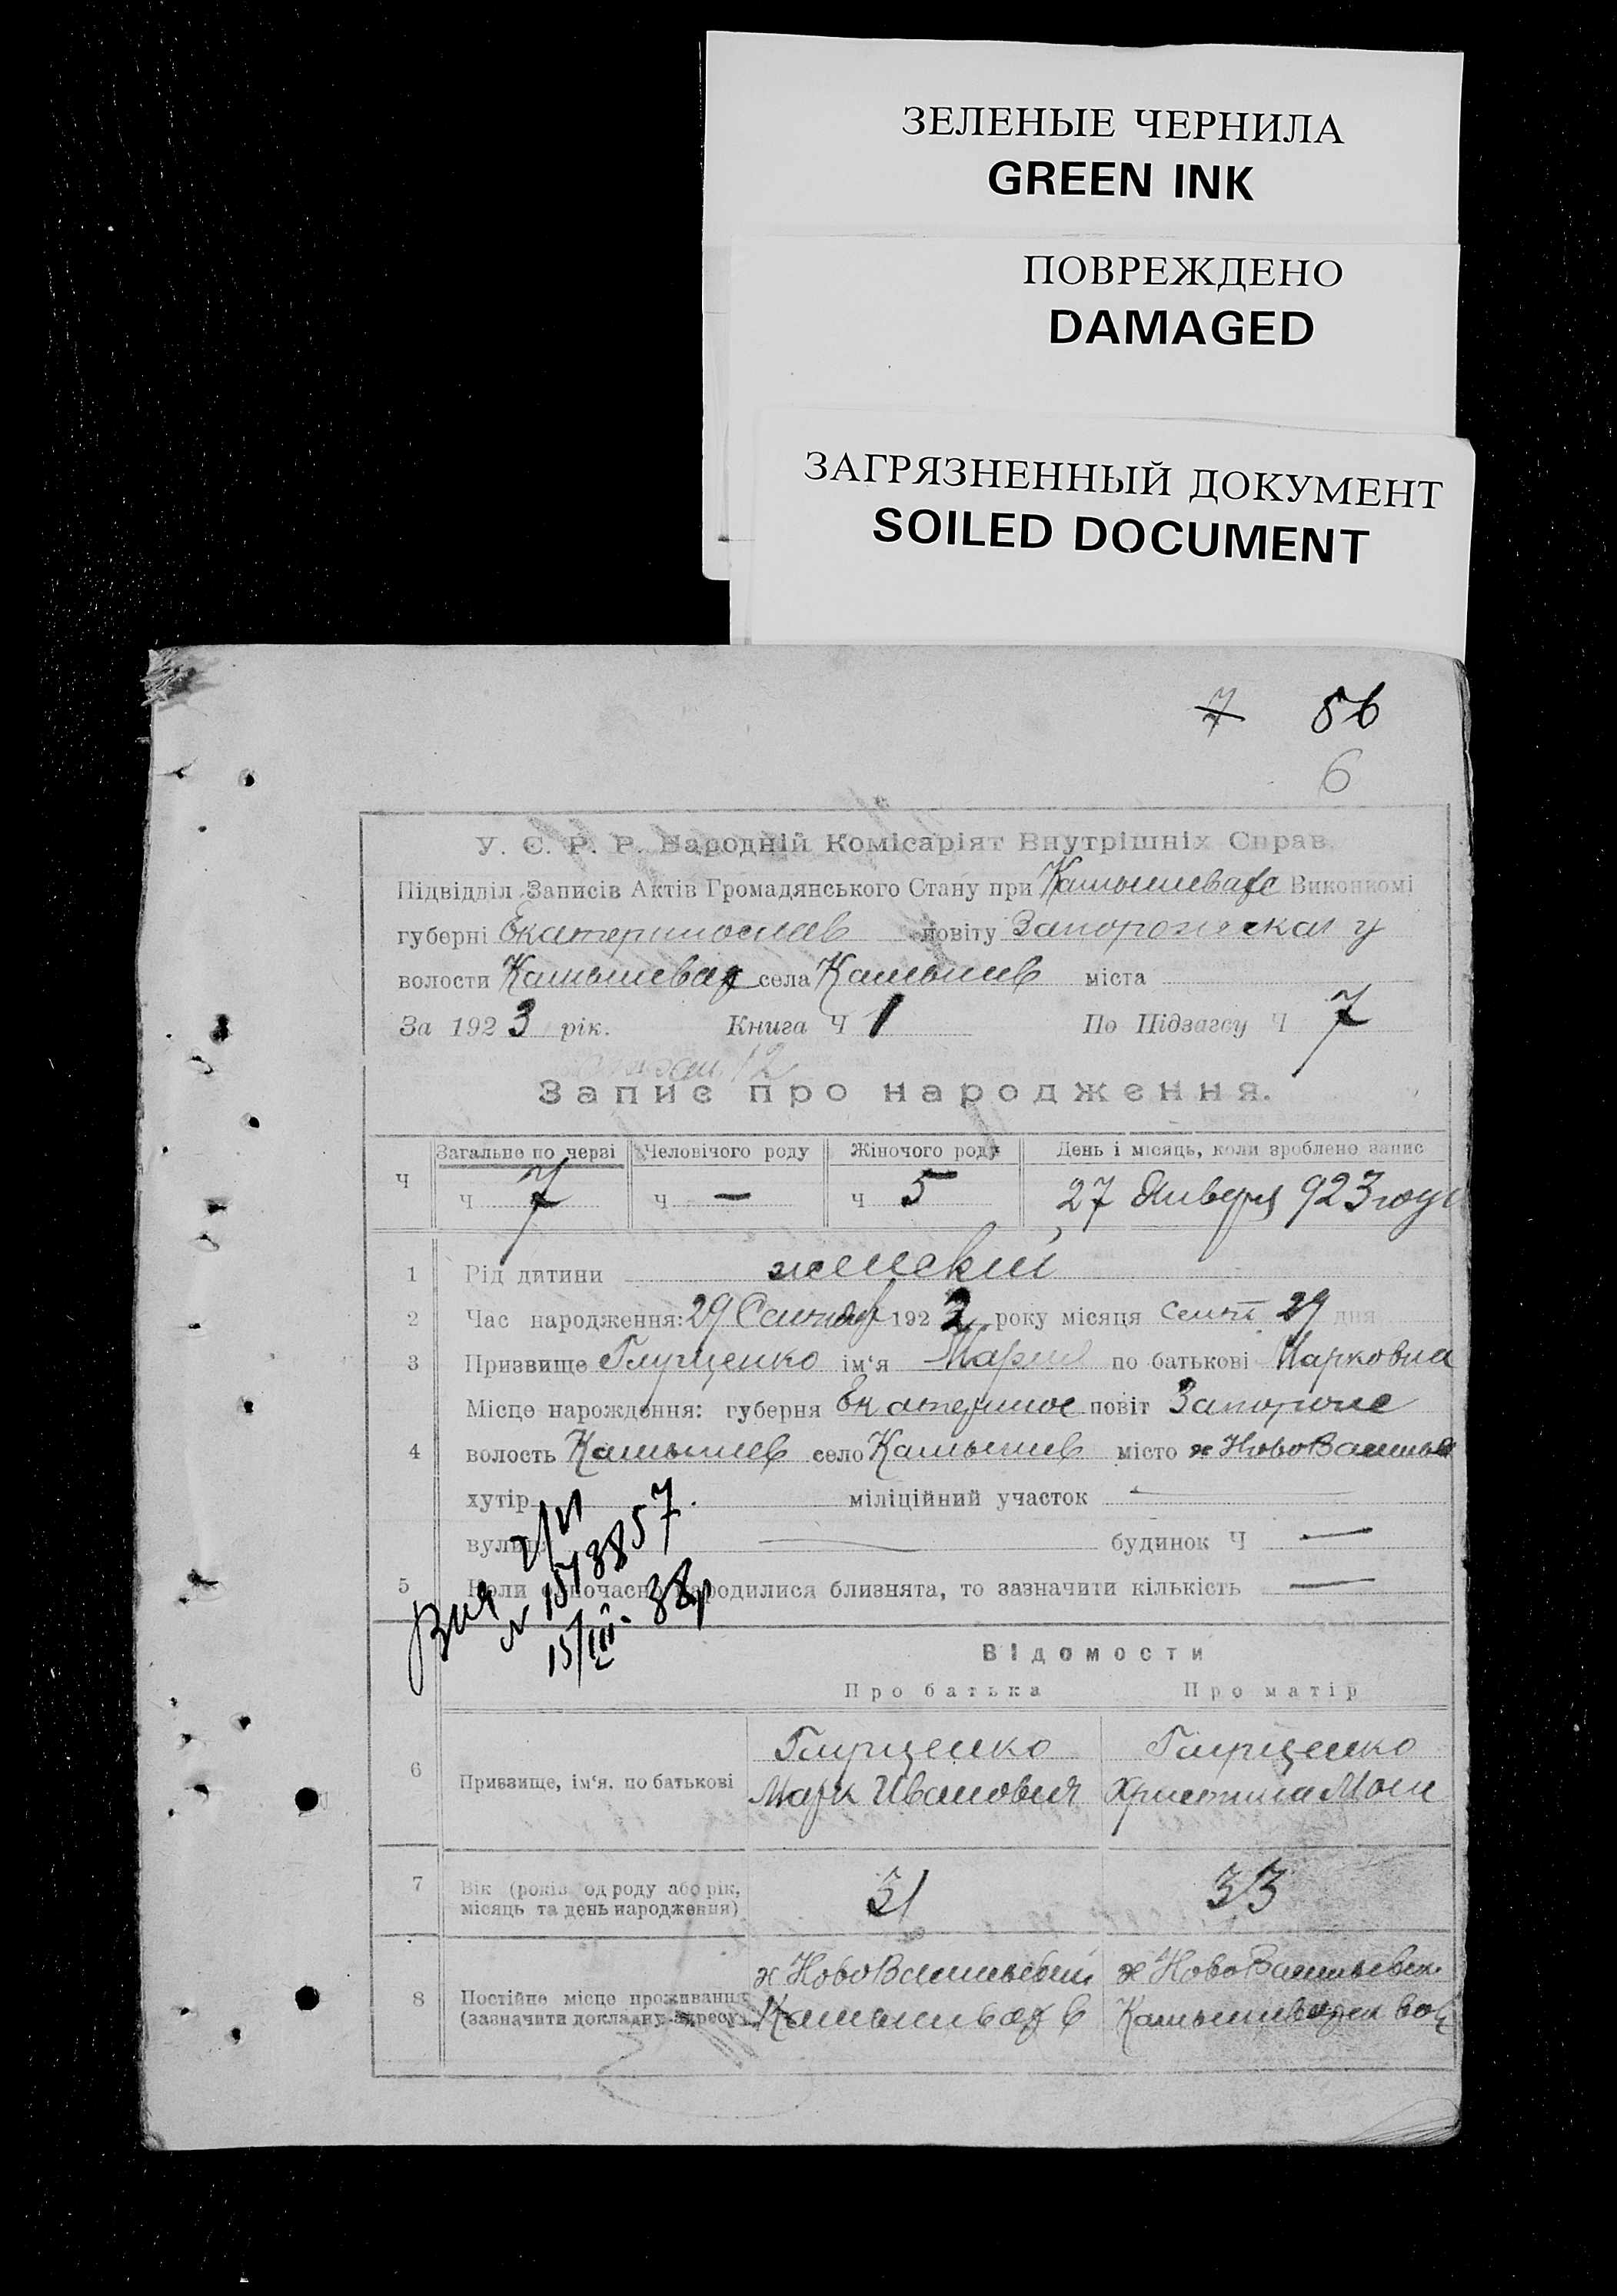 ЗЕЛЕНЫЕ ЧЕРНИЛА
GREEN INK
ПОВРЕЖДЕНО
DAMAGED
ЗАГРЯЗНЕННЫЙ ДОКУМЕНТ
SOILED DOCUMENT
7 56
6
У. С. Р. Р. Народній Комісаріят Внутрішніх Справ.
Підвідділ Записів Актів Громадянського Стану при Камышеват Виконкомі
губерні Екатеринослав повіту Запорожская у
волости Камышеват села Камышев міста
За 1923 рік. Книга Ч 1 По Підзагсу Ч 7
Запис про народження.
Загальне по черзі Человічого роду Жіночого роду День і місяць, коли зроблено запис
Ч Ч 7 Ч — Ч 5 27 Января 923 года
1 Рід дитини женский
2 Час народження: 29 Сентяб 1922 року місяця Сент 29 дня
3 Призвище Глущенко ім'я Мария по батькові Марковна
Місце нарождення: губерня Екатеринос повіт Запорож
4 волость Камышев село Камышев місто х НовоВасильев
хутір міліційний участок —
вулиця — будинок Ч —
5 Коли одночасно народилися близнята, то зазначити кількість —
№ 1573857.
15/III-38р
Відомости
Про батька Про матір
Глущенко Глущенко
6 Призвище, ім'я, по батькові Марк Иванович Христина Мои
7 Вік (років од роду або рік, 31 33
місяць та день народження)
х НовоВасильевки х НовоВасильевск.
8 Постійне місце проживання
(зазначити докладну адресу) Камышеват в Камышеватск вол